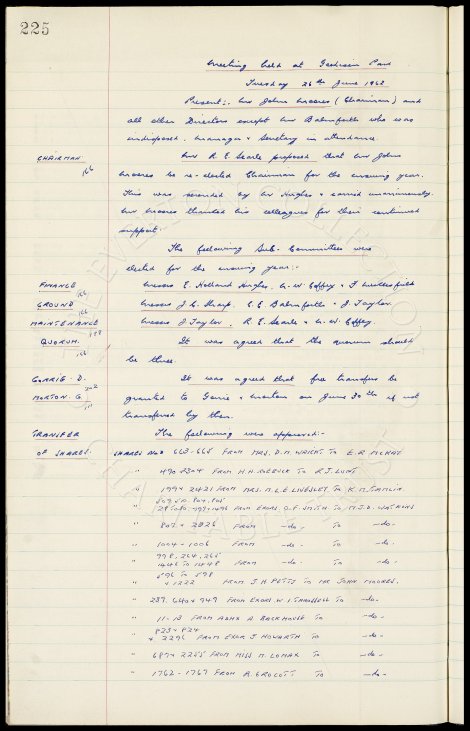 225
Meeting held at Goodison Park
Tuesday 26th June 1962
Present:- Mr John Moores (Chairman) and
all other Directors except Mr Balmforth who was
indisposed. Manager & Secretary in attendance.
CHAIRMAN
Mr R. E. Searle proposed that Mr John
Moores be re-elected Chairman for the ensuing year.
This was seconded by Mr Hughes & carried unanimously.
Mr Moores thanked his colleagues for their continued
support.
The following Sub. Committees were
elected for the ensuing year:-
FINANCE
Messrs E. Holland Hughes, C. W. Coffey & F. Micklesfield
GROUND
Messrs J. C. Sharp, C. E. Balmforth & J. Taylor
MAINTENANCE
Messrs J. Taylor, R. E. Searle & C. W. Coffey
QUORUM.
It was agreed that the quorum should
be three.
GARRIE. D.
It was agreed that free transfers be
MORTON. G.
granted to Garrie & Morton on June 30th if not
transferred by then.
TRANSFER
The following were approved:-
OF SHARES.
SHARES Nos 663-665 FROM MRS. D. M. WRIGHT TO E. R. McKAY
" 490 & 504 FROM H. H. ROEBUCK TO R. J. LUNT
" 1994 & 2421 FROM MRS. M. L. E. LIVESLEY TO K. M. TAMLIN
FROM EXORS. O. F. SMITH TO M. J. D. WATKINS
" 807 & 2326 FROM -do- TO -do-
" 1004 & 1006 FROM -do- TO -do-
" 998, 264, 265
1446 TO 1448 FROM -do- TO -do-
" 596 TO 598
& 1222 FROM J. H. PETTS TO MR JOHN MOORES.
" 237. 640 & 949 FROM EXORS. W. I. THRELFELL TO -do-
" 11-13 FROM A BACKHOUSE TO -do-
" 823 & 824
& 2296 FROM EXOR J. HOWARTH TO -do-
" 687 & 2265 FROM MISS M. LOMAX TO -do-
" 1762-1767 FROM A. GROCOTT TO -do-
THE EVERTON COLLECTION